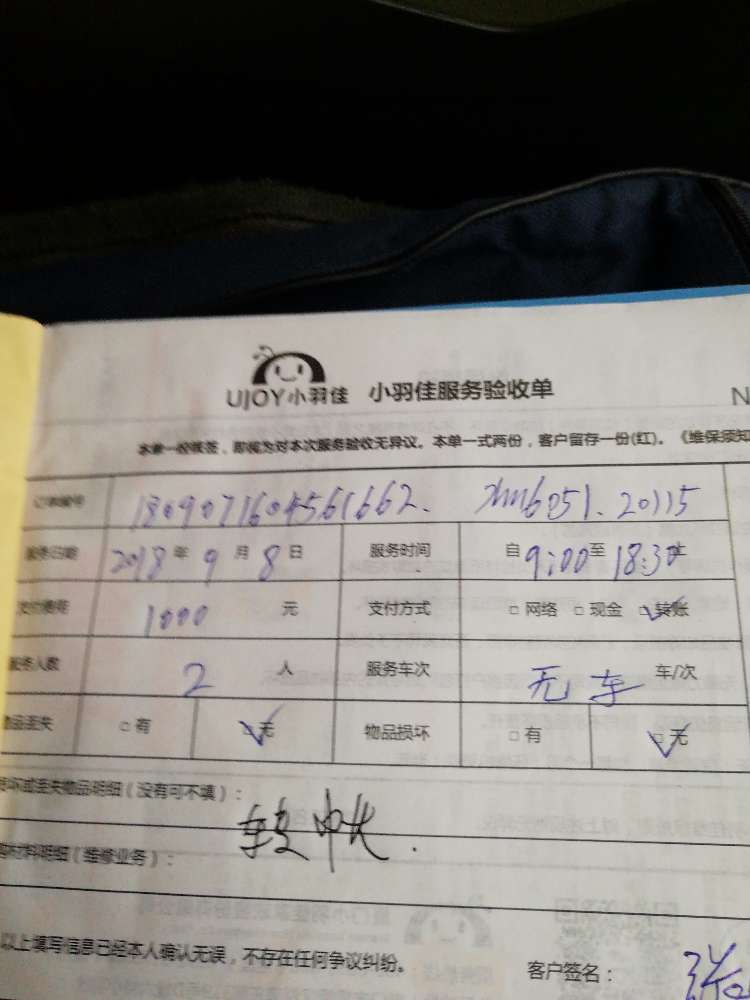 UJOY小羽佳 小羽佳服务验收单 N
本单一经签签，即视为对本次服务验收无异议。本单一式两份，客户留存一份(红)。《维保须知
订单编号 1809071604561662. xm6051.20115
服务日期 2018 年 9 月 8 日 服务时间 自 9:00 至 18:30 止
支付费用 1000 元 支付方式 □ 网络 □ 现金 ☑ 转账
服务人数 2 人 服务车次 无车 车/次
物品丢失 □ 有 ☑ 无 物品损坏 □ 有 ☑ 无
损坏或丢失物品明细（没有可不填）：
材料明细（维修业务）：
以上填写信息已经本人确认无误，不存在任何争议纠纷。
客户签名： 张